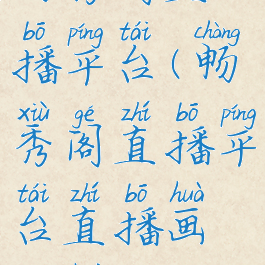 bō píng tái chàng
播平台(畅
xiù gé zhí bō píng
秀阁直播平
tái zhí bō huà
台直播画